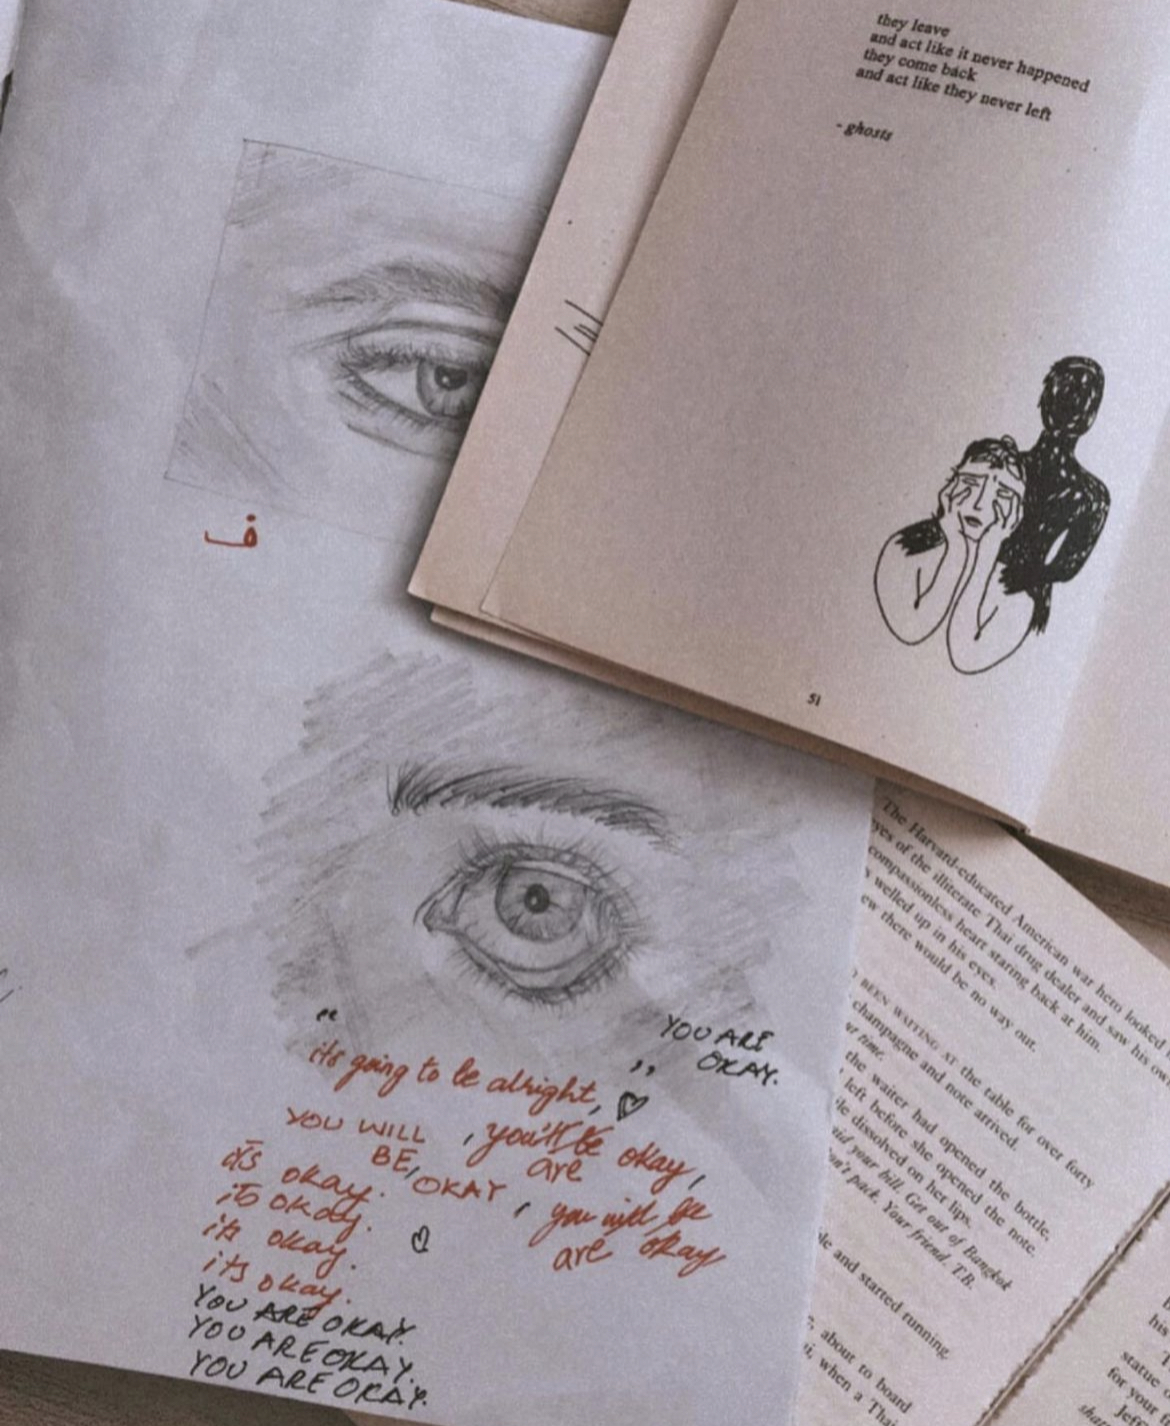 they leave
and act like it never happened
they come back
and act like they never left
- ghosts
51
ف
"
YOU ARE
OKAY.
its going to be alright, "
YOU WILL
BE, OKAY
, you'll be okay,
are
, you will be
are okay
its okay.
its okay.
its okay.
its okay.
YOU ARE OKAY.
YOU ARE OKAY.
YOU ARE OKAY.
The Harvard-educated American war hero looked
yes of the illiterate Thai drug dealer and saw his ow
compassionless heart staring back at him.
welled up in his eyes.
ew there would be no way out.
BEEN WAITING AT the table for over forty
champagne and note arrived.
time.
the waiter had opened the bottle,
left before she opened the note.
dissolved on her lips.
your bill. Get out of Bangkok
pack. Your friend, T.B.
and started running.
about to board
when a Thai
his
statue
for your
Jeff